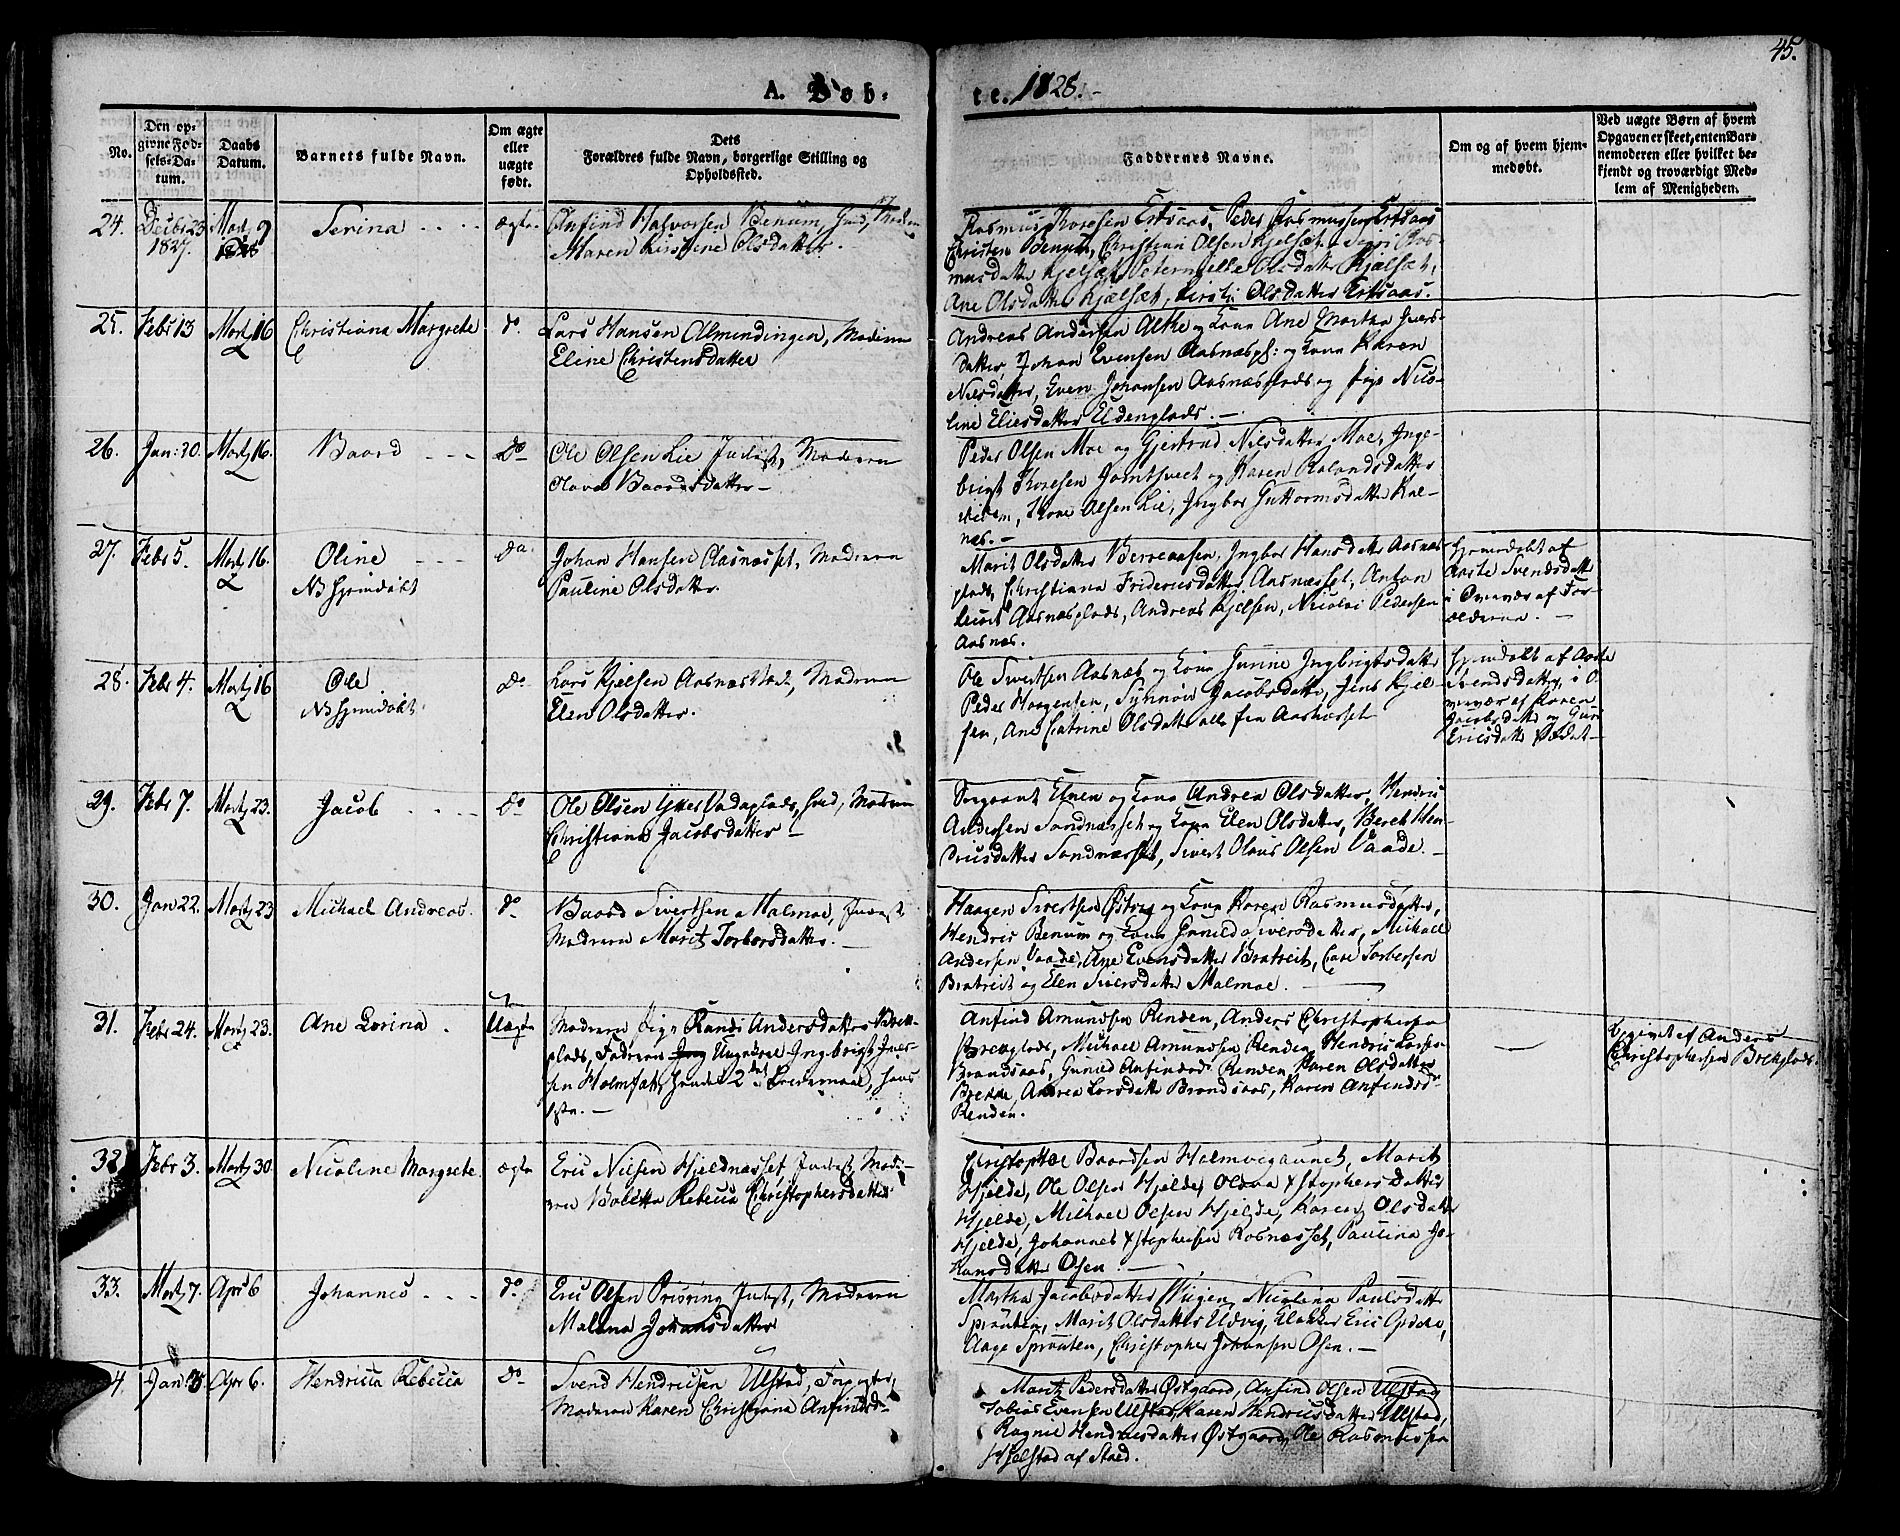 45.
A. Døb-
te. 1828.-
No.
Den op-
givne Fød-
sels-Da-
tum.
Daabs
Datum.
Barnets fulde Navn.
Om ægte
eller
uægte
født.
Dets
Forældres fulde Navn, borgerlige Stilling og
Opholdssted.
Faddernes Navne.
Om og af hvem hjem-
medøbt.
Ved uægte Børn af hvem
Opgaven er skeet, enten Bar-
nemoderen eller hvilket be-
kjendt og troværdigt Med-
lem af Menigheden.
24.
Decbr 23
1827.
Martz 9
1828
Serina
ægte
Anfind Halvorsen Benum,
Maren Kirstine Olsdatter.
Rasmus Thoresen Estsaas, Peder Rasmussen Estsaas
Christen Benum, Christian Olsen Kjelsæt, Sigri Ras-
musdatter Kjelsæt, Peternelle Olsdatter Kjelsæt,
Ane Olsdatter Kjælsæt, Kirsti Olsdatter Estsaas.
25.
Febr 13
Martz 16
Christiana Margrete
do.
Lars Hansen Almindingen, Moderen
Eline Christensdatter
Andreas Andersen og Kona Ane Martha Ivers-
datter, Johan Evensen Aasnæspl: og Kona Karen
Nilsdatter, Even Johansen Aasnæsplads og Pige Nico-
line Eliesdatter Eldenplads. -
26.
Jan: 30.
Martz 16.
Baard
do
Ole Olsen Lie Inderst, Moderen
Olava Baardsdatter -
Peder Olsen Moe og Gjertrud Nilsdatter Moe, Inge-
brigt Thoresen Jomtsvedt og Karen Rolandsdatter
Olsen Lie, Ingbor Guttormsdatter Kal-
næs. -
27.
Febr 5.
Martz 16.
Oline
NB hjemdøbt
do.
Johan Hansen Aasnæsset, Moderen
Pauline Olsdatter.
Marit Olsdatter Berreaasen, Ingbor Hansdatter Aasnæs-
plads, Christiana Friderisdatter Aasnæsset, Anton
Aasnæsplads, Andreas Kjelsen, Nicolai Pedersen
Aasnæs.
Hjemdøbt af
Aaste Svendsdatter
i Overvær af For-
ældrene. -
28.
Febr 4.
Martz 16
Ole
NB hjemdøbt.
do
Lars Kjelsen Aasnæs, Moderen
Elen Olsdatter.
Ole Sivertsen Aasnæs og Kona Gurine Ingbrigtsdatter
Peder Horgensen, Synnøve Jacobsdatter, Jens Kjel-
sen, Ane Catrine Olsdatter alle fra Aasnæsset
Hjemdøbt af Aaste
Svendsdatter, i O-
vervær af Karen
Jacobsdatter og Guri
Ericsdatter
29.
Febr 7.
Martz 23.
Jacob
do
Ole Olsen Vadaplads, Moderen
Christiana Jacobsdatter -
Sergeant Elnen og Kona Andrea Olsdatter, Hendric
Andersen Sandnæsset og Kona Elen Olsdatter, Beret Hen-
dricsdatter Sandnæsset, Sivert Olaus Olsen Vaade. -
30.
Jan 22.
Martz 23
Michael Andreas.
do
Baard Sivertsen Malmoe, Inderst
Moderen Marit Torborsdatter. -
Haagen Sivertsen Østvig og Kona Karen Rasmusdatter,
Hendric Benum og Kona Gunild Siversdatter, Michael
Andersen Vaade, Ane Evensdatter Bratreit,
Bratreit og Elen Siversdatter Malmoe.
31.
Febr 24.
Martz 23.
Ane Lorina
Uægte
Moderen Pige Randi Andersdatter Brek-
plads, Faderen Ungekarl Ingbrigt Iver-
sen Holmsæt, hendes 2det Leiermaal, hans
1ste. -
Anfind Amundsen Renden, Anders Christophersen
Brekplads, Michael Amundsen Renden, Hendric Larsen
Brandsaas, Gunild Anfindsd Renden, Karen Olsdatter
Brekke, Andrea Larsdatter Brandsaas, Karen Anfindsd
Renden.
Opgivet af Anders
Christophersen Brekplads.
32.
Febr 3.
Martz 30.
Nicoline Margrete.
ægte
Eric Nilsen Hjeldnæsset Inderst, Mode-
ren Boletta Rebecca Christophersdatter
Christopher Baardsen Holmvegaunet, Marit
Hjelde, Ole Olsen Hjelde, Oldva Xstophersdatter
Hjelde, Michael Olsen Hjelde, Karen Olsdatter
Hjelde, Johannes Xstophersen Rosnæsset, Paulina Jo-
hansdatter Olsen. -
33.
Martz 7.
Apr 6
Johannes
do.
Eric Olsen Inderst, Moderen
Malena Johansdatter
Martha Jacobsdatter Wigen, Nicolina Paulsdatter
Sprauten, Marit Olsdatter Udvig, Klokker Eric Opdahl,
Aage Sprauten, Christopher Johansen Olsen. -
4.
Jan 3
Apr 6.
Hendricca Rebecca
do
Svend Hendricsen Ulstad, Forpagter,
Moderen Karen Christiana Anfindsd-
Marit Pedersdatter Østgaard, Anfind Olsen Ulstad
Tobias Evensen Ulstad, Karen Hendricsdatter Ulstad,
Ragnil Hendricsdatter Østgaard, Ole Rasmussen
Hjelstad af Stod.